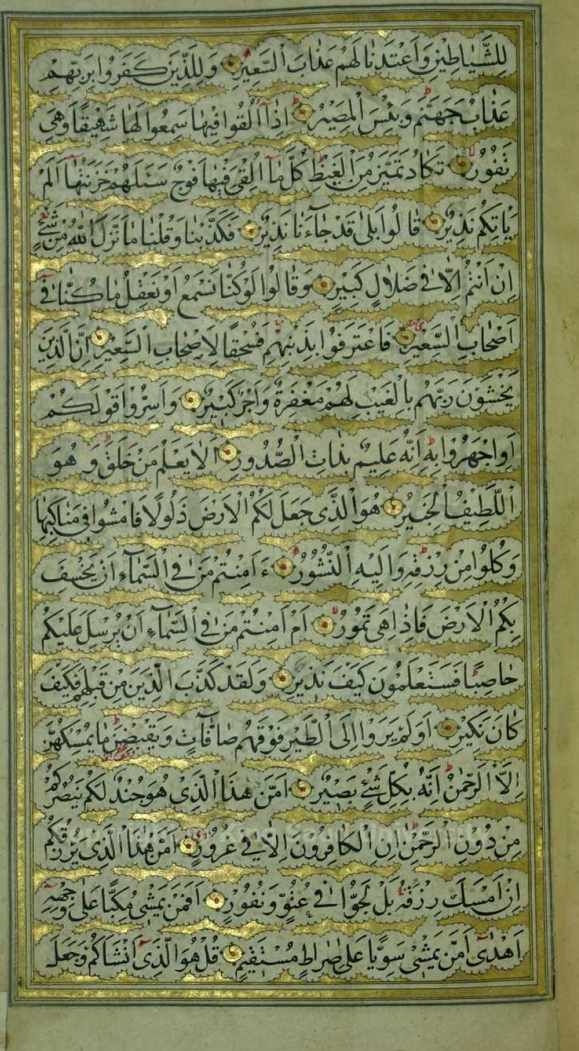 لِلشَّيَاطِينِ وَاَعْتَدْنَا لَهُمْ عَذَابَ السَّعِيرِ وَلِلَّذِينَ كَفَرُوا بِرَبِّهِمْ
عَذَابُ جَهَنَّمَ وَبِئْسَ الْمَصِيرُ اِذَا اُلْقُوا فِيهَا سَمِعُوا لَهَا شَهِيقًا وَهِيَ
تَفُورُ تَكَادُ تَمَيَّزُ مِنَ الْغَيْظِ كُلَّمَا اُلْقِيَ فِيهَا فَوْجٌ سَئَلَهُمْ خَزَنَتُهَا اَلَمْ
يَاْتِكُمْ نَذِيرٌ قَالُوا بَلٰى قَدْ جَاءَنَا نَذِيرٌ فَكَذَّبْنَا وَقُلْنَا مَا نَزَّلَ اللّٰهُ مِنْ شَيْءٍ
اِنْ اَنْتُمْ اِلَّا فِي ضَلَالٍ كَبِيرٍ وَقَالُوا لَوْ كُنَّا نَسْمَعُ اَوْ نَعْقِلُ مَا كُنَّا فِي
اَصْحَابِ السَّعِيرِ فَاعْتَرَفُوا بِذَنْبِهِمْ فَسُحْقًا لِاَصْحَابِ السَّعِيرِ اِنَّ الَّذِينَ
يَخْشَوْنَ رَبَّهُمْ بِالْغَيْبِ لَهُمْ مَغْفِرَةٌ وَاَجْرٌ كَبِيرٌ وَاَسِرُّوا قَوْلَكُمْ
اَوِ اجْهَرُوا بِهِ اِنَّهُ عَلِيمٌ بِذَاتِ الصُّدُورِ اَلَا يَعْلَمُ مَنْ خَلَقَ وَهُوَ
اللَّطِيفُ الْخَبِيرُ هُوَ الَّذِي جَعَلَ لَكُمُ الْاَرْضَ ذَلُولًا فَامْشُوا فِي مَنَاكِبِهَا
وَكُلُوا مِنْ رِزْقِهِ وَاِلَيْهِ النُّشُورُ ءَاَمِنْتُمْ مَنْ فِي السَّمَاءِ اَنْ يَخْسِفَ
بِكُمُ الْاَرْضَ فَاِذَا هِيَ تَمُورُ اَمْ اَمِنْتُمْ مَنْ فِي السَّمَاءِ اَنْ يُرْسِلَ عَلَيْكُمْ
حَاصِبًا فَسَتَعْلَمُونَ كَيْفَ نَذِيرِ وَلَقَدْ كَذَّبَ الَّذِينَ مِنْ قَبْلِهِمْ فَكَيْفَ
كَانَ نَكِيرِ اَوَلَمْ يَرَوْا اِلَى الطَّيْرِ فَوْقَهُمْ صَافَّاتٍ وَيَقْبِضْنَ مَا يُمْسِكُهُنَّ
اِلَّا الرَّحْمٰنُ اِنَّهُ بِكُلِّ شَيْءٍ بَصِيرٌ اَمَّنْ هٰذَا الَّذِي هُوَ جُنْدٌ لَكُمْ يَنْصُرُكُمْ
مِنْ دُونِ الرَّحْمٰنِ اِنِ الْكَافِرُونَ اِلَّا فِي غُرُورٍ اَمَّنْ هٰذَا الَّذِي يَرْزُقُكُمْ
اِنْ اَمْسَكَ رِزْقَهُ بَلْ لَجُّوا فِي عُتُوٍّ وَنُفُورٍ اَفَمَنْ يَمْشِي مُكِبًّا عَلٰى وَجْهِهِ
اَهْدٰى اَمَّنْ يَمْشِي سَوِيًّا عَلٰى صِرَاطٍ مُسْتَقِيمٍ قُلْ هُوَ الَّذِي اَنْشَاَكُمْ وَجَعَلَ